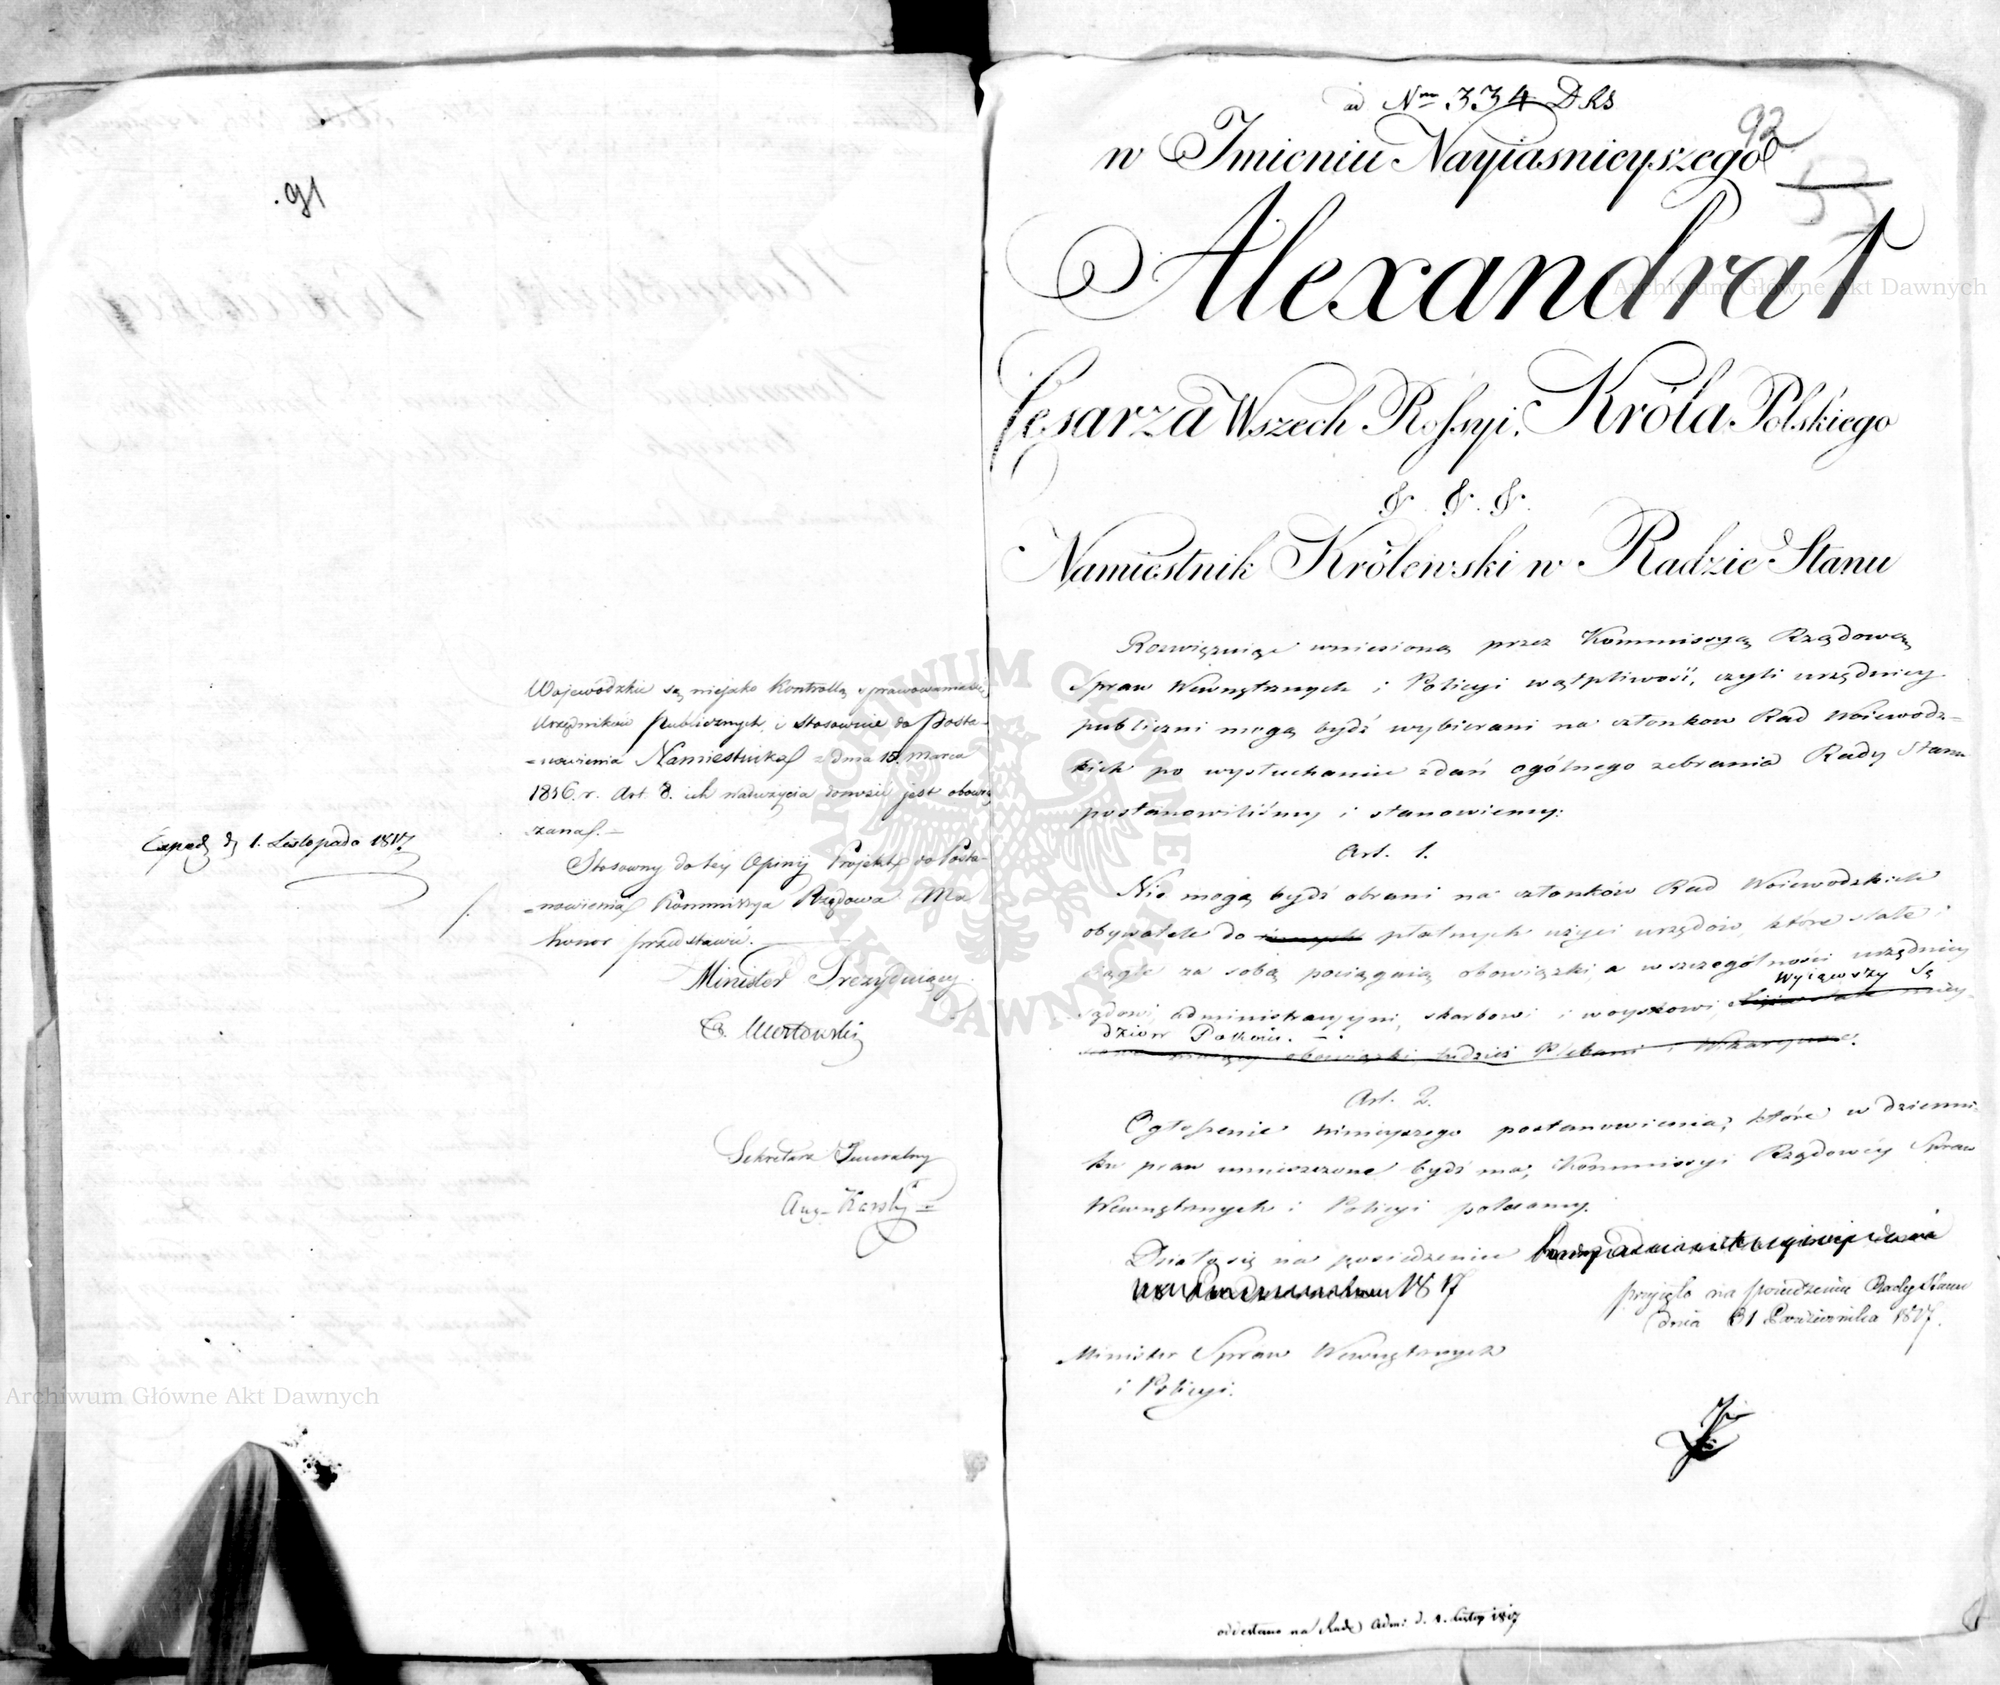 91
Wojewódzkie są niejako Kontrollą sprawowania się
Urzędników Publicznych, i stosownie do Posta-
-nowienia Namiestnika z dnia 15. Marca
1816. r. Art. 8. ich nadużycia donosić jest obowią
zana. —
Stosowny do tey Opinij Projekt do Posta-
-nowienia Kommissya Rządowa Ma
honor przedstawić.
Minister Prezyduiący
Sekretarz Jeneralny
Exped. d. 1. Listopada 1817
ad Nrm 334 DRS
92
w Imieniu Nayiasnieyszego
Alexandra I
Cesarza Wszech Rossyi, Króla Polskiego
&. &. &.
Namiestnik Królewski w Radzie Stanu
Rozwiązuiąc wniesioną przez Kommissyą Rządową
Spraw Wewnętrznych i Policyi wątpliwość, czyli urzędnicy
publiczni mogą bydź wybierani na członków Rad Woiewódz-
kich po wysłuchaniu zdań ogólnego zebrania Rady Stanu
postanowiliśmy i stanowiemy:
Art. 1.
Nie mogą bydź obrani na członków Rad Woiewodzkich
obywatele do płatnych użyci urzędów, które stałe i
ciągłe za sobą pociągaią obowiązki, a w szczególności urzędnicy
Wyiąwszy Sę
sądowi, administracyjni, skarbowi i woyskowi,
dziow Pokoiu. —
obowiązki, tudzież Plebani i Wikaryusze.
Art. 2.
Ogłoszenie ninieyszego postanowienia, które w dzienni-
ku praw umieszczone bydź ma, Kommissyi Rządowéy Spraw
Wewnętrznych i Policyi polecamy.
Działo się na posiedzeniu
1817
przyięto na posiedzeniu Rady Stanu
dnia 31 Października 1817.
Minister Spraw Wewnętrznych
i Policyi.
odesłano na Radę Adm: d. 1. Listop 1817
Archiwum Główne Akt Dawnych
Archiwum Główne Akt Dawnych
ARCHIWUM GŁÓWNE AKT DAWNYCH